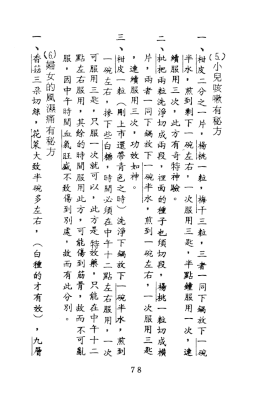 (5.)小兒咳嗽有秘方
一、柑皮二分之一片，楊桃一粒，梅干三粒，三者一同下鍋放下一碗
半水，煎到剩下一碗左右，一次服用三匙，半點鐘服用一次，連
續服用三次，此方有奇特神驗。
二、枇杷兩粒洗淨切成兩段，裡面的種子也須切段，楊桃一粒切成橫
片，兩者一同下鍋放下一碗半水，煎到一碗左右，一次服用三匙
，連續服用三次，功效如神。
三、柑皮一粒（剛上市還帶青色之時）洗淨下鍋放下一碗半水，煎到
一碗左右，摻下些白糖，時間必須在中午十二點左右服用，一次
可服用三匙，只服一次就可以，此方是特效藥，只能在中午十二
點左右服用，其餘的時間服用此方，可能傷到筋骨，故而不可亂
服，因中午時間血氣旺盛不致傷到別處，故而有此分別。
(6.)婦女的風濕痛有秘方
一、香菇三朵切絲，花菜大致半碗多左右，（白種的才有效），九層
78